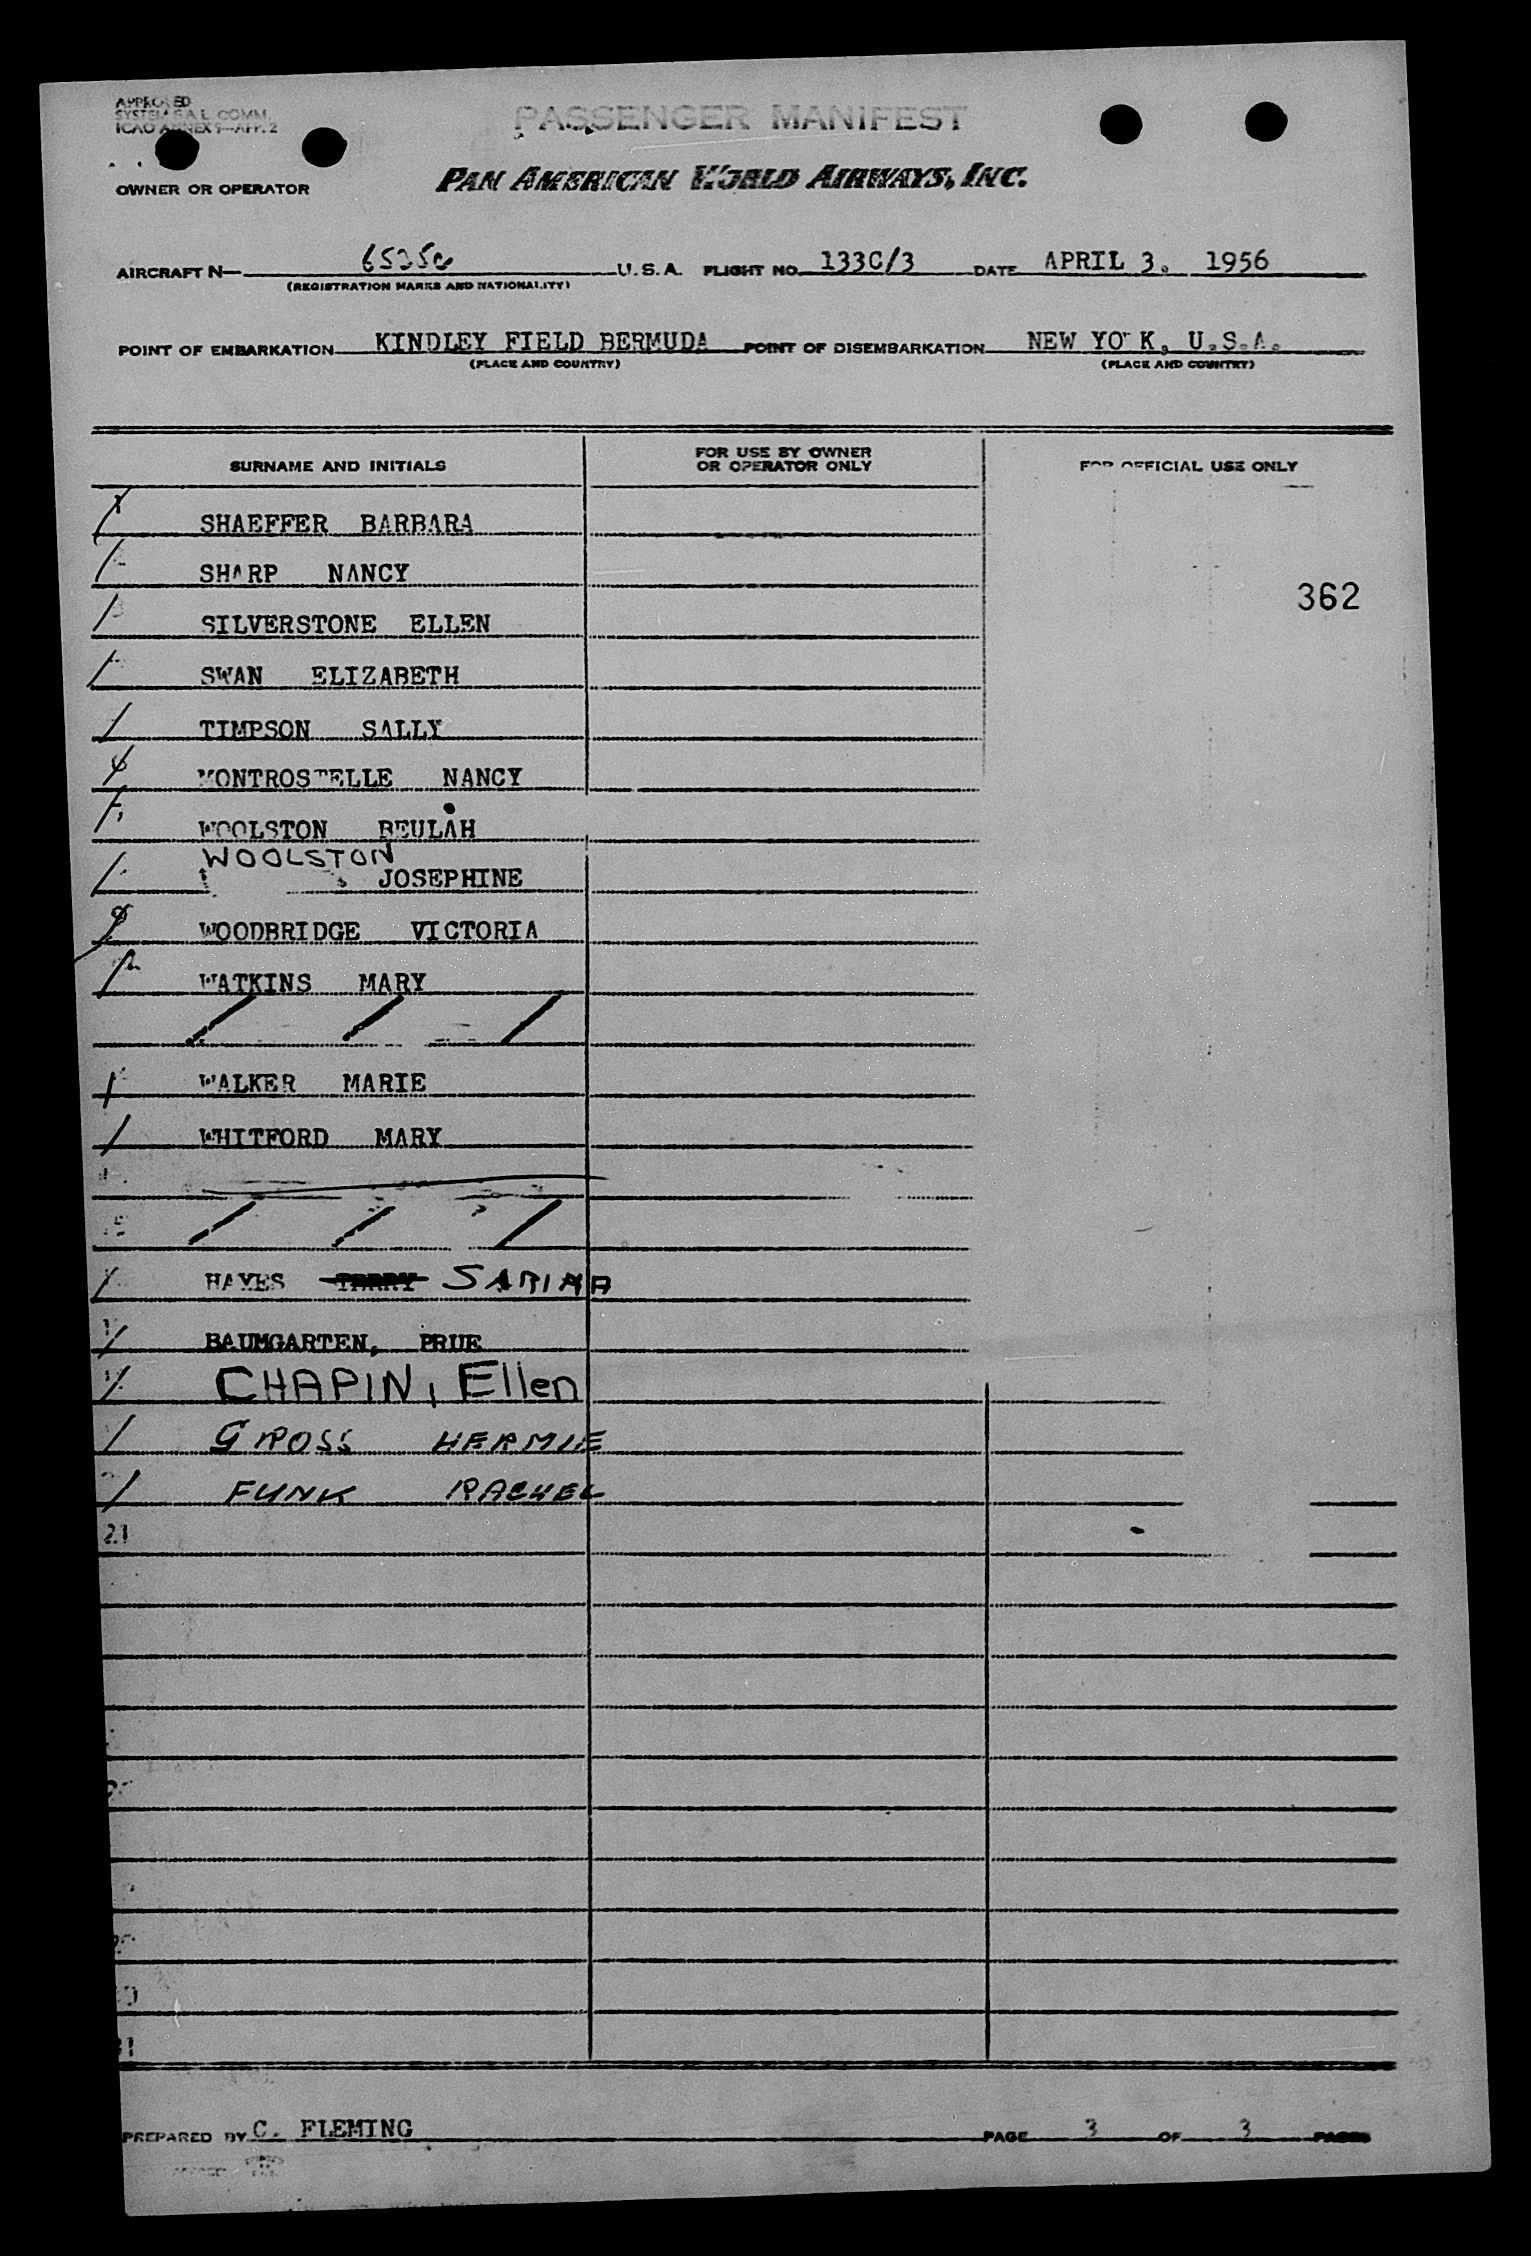 APPROVED
SYSTEM S.A.L. COMM.
ICAO ANNEX 9—APP. 2
PASSENGER MANIFEST
OWNER OR OPERATOR PAN AMERICAN WORLD AIRWAYS, INC.
AIRCRAFT N— U.S.A. FLIGHT NO. 133C/3 DATE APRIL 3. 1956
(REGISTRATION MARKS AND NATIONALITY)
POINT OF EMBARKATION KINDLEY FIELD BERMUDA POINT OF DISEMBARKATION NEW YO K, U.S.A.
(PLACE AND COUNTRY) (PLACE AND COUNTRY)
SURNAME AND INITIALS FOR USE BY OWNER OR OPERATOR ONLY FOR OFFICIAL USE ONLY
SHAEFFER BARBARA
SHARP NANCY
362
SILVERSTONE ELLEN
SWAN ELIZABETH
TIMPSON SALLY
MONTROSTELLE NANCY
WOOLSTON BEULAH
WOOLSTON
JOSEPHINE
WOODBRIDGE VICTORIA
WATKINS MARY
/ / /
WALKER MARIE
WHITFORD MARY
/ / /
HAYES SARINA
BAUMGARTEN, PRUE
CHAPIN, Ellen
GROSS HERMIE
FUNK RACHEL
21
PREPARED BY C. FLEMING PAGE 3 OF 3 PAGES